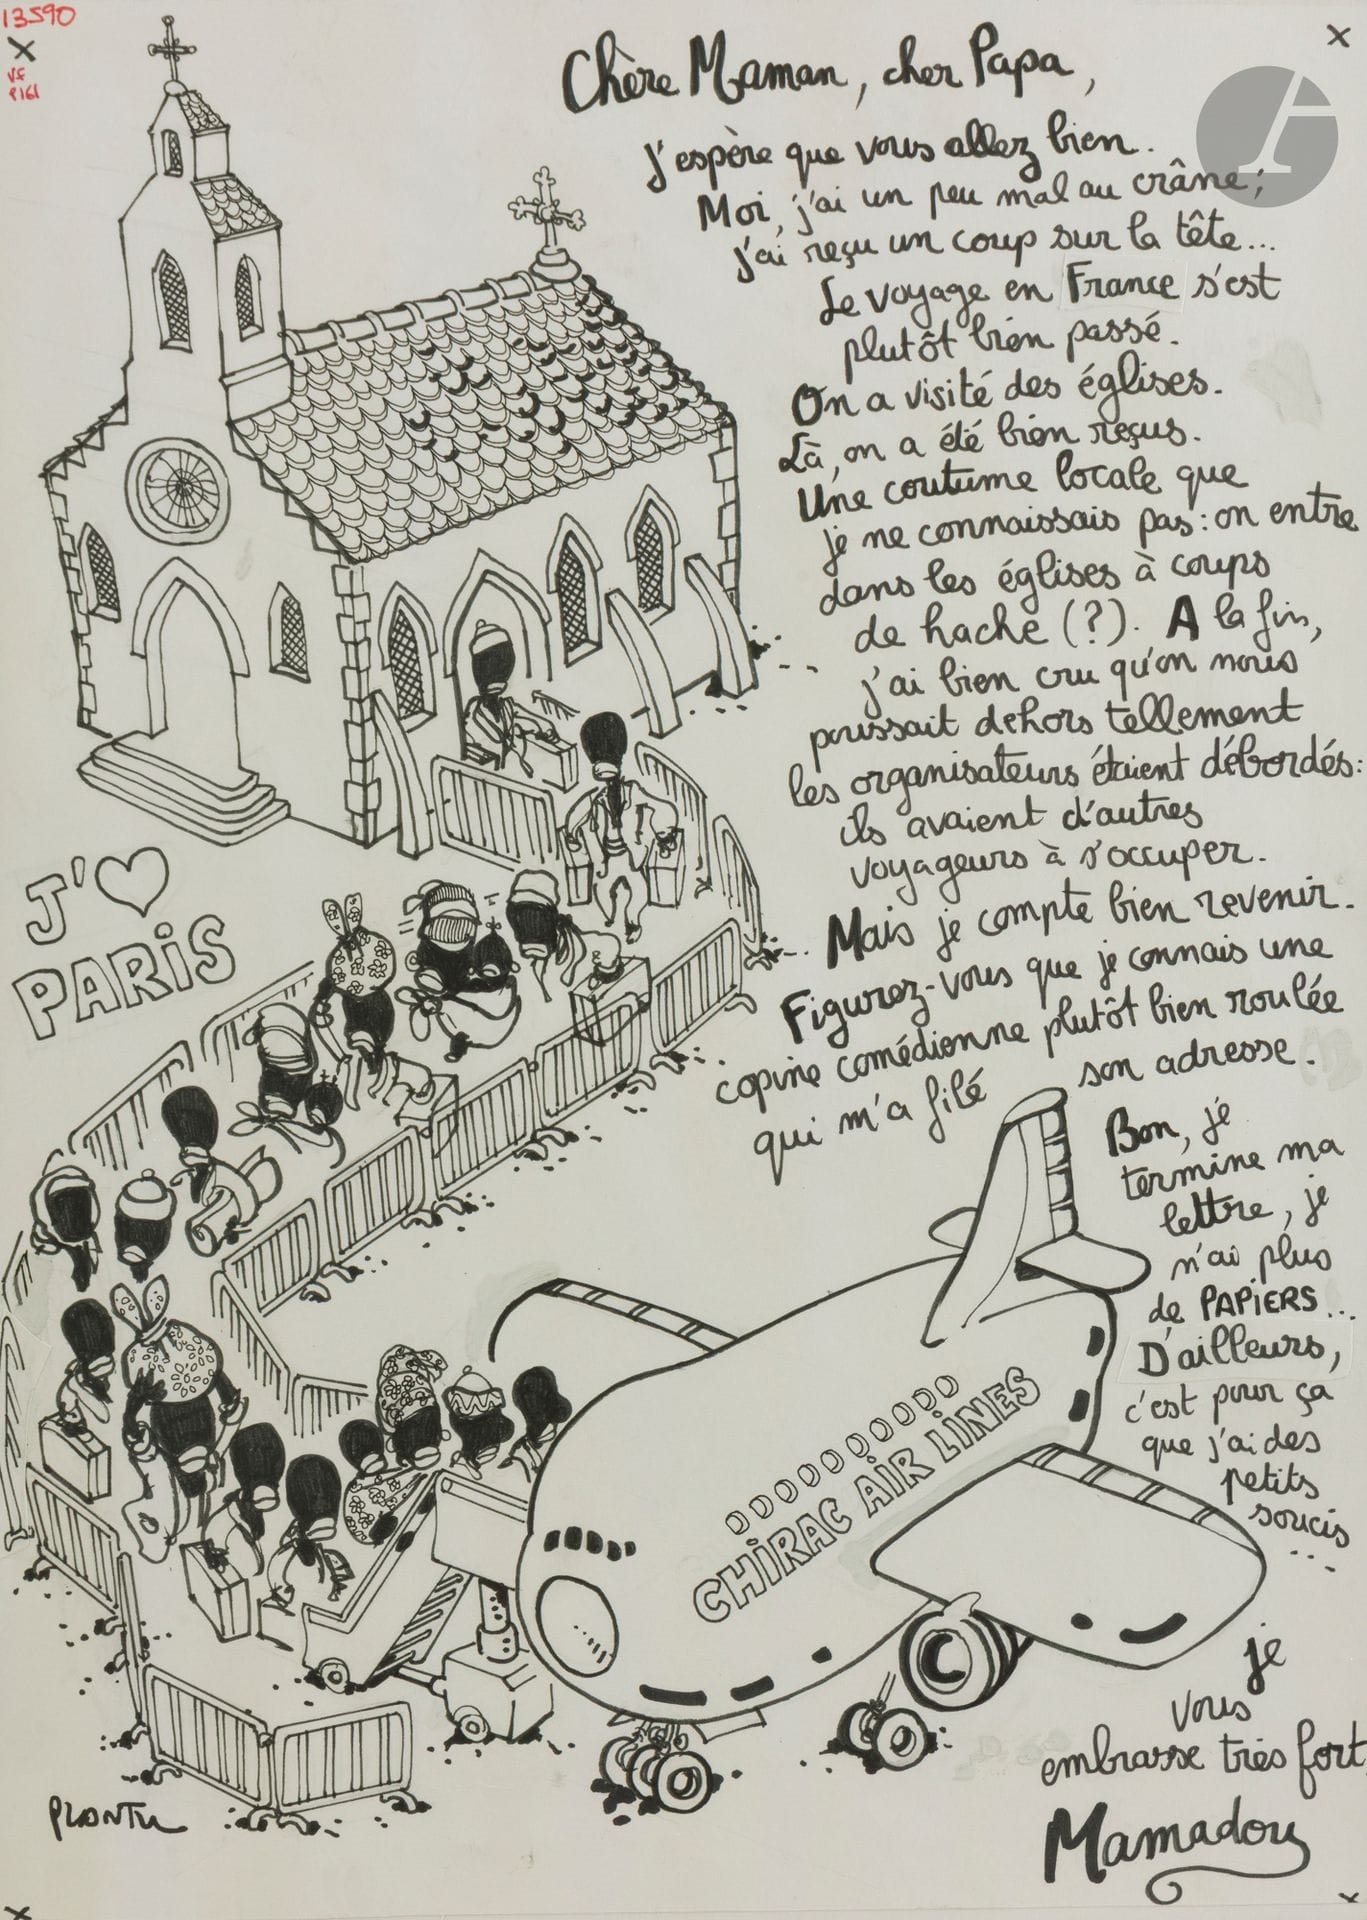 13590
VF
P161
Chère Maman, cher Papa,
J'espère que vous allez bien.
Moi, j'ai un peu mal au crâne ;
j'ai reçu un coup sur la tête...
Le voyage en France s'est
plutôt bien passé.
On a visité des églises.
Là, on a été bien reçus.
Une coutume locale que
je ne connaissais pas : on entre
dans les églises à coups
de hache (?). A la fin,
j'ai bien cru qu'on nous
poussait dehors tellement
les organisateurs étaient débordés :
ils avaient d'autres
voyageurs à s'occuper.
Mais je compte bien revenir.
Figurez-vous que je connais une
copine comédienne plutôt bien roulée
qui m'a filé son adresse.
Bon, je
termine ma
lettre, je
n'ai plus
de PAPIERS...
D'ailleurs,
c'est pour ça
que j'ai des
petits
soucis
...
je
vous
embrasse très fort,
Mamadou
J'♡
PARIS
CHIRAC AIR LINES
PLANTU